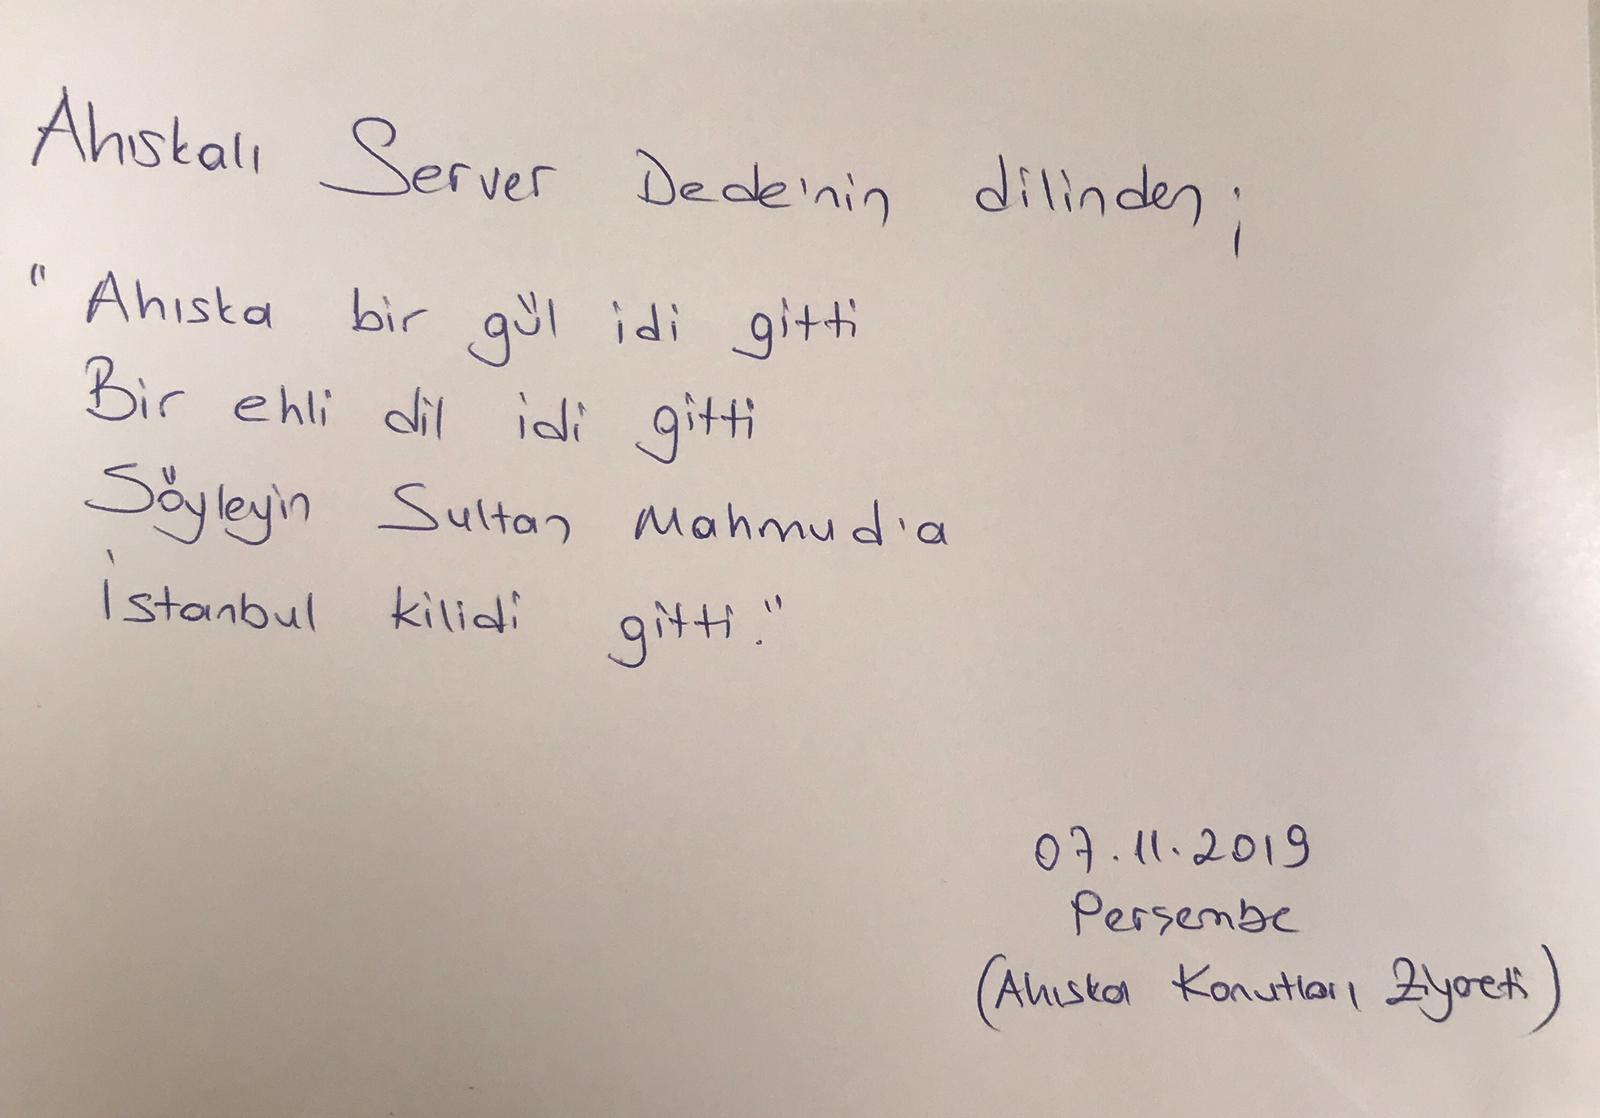 Ahıskalı Server Dede'nin dilinden;
"Ahıska bir gül idi gitti
Bir ehli dil idi gitti
Söyleyin Sultan Mahmud'a
İstanbul kilidi gitti."
07.11.2019
Perşembe
(Ahıska Konutları Ziyareti)